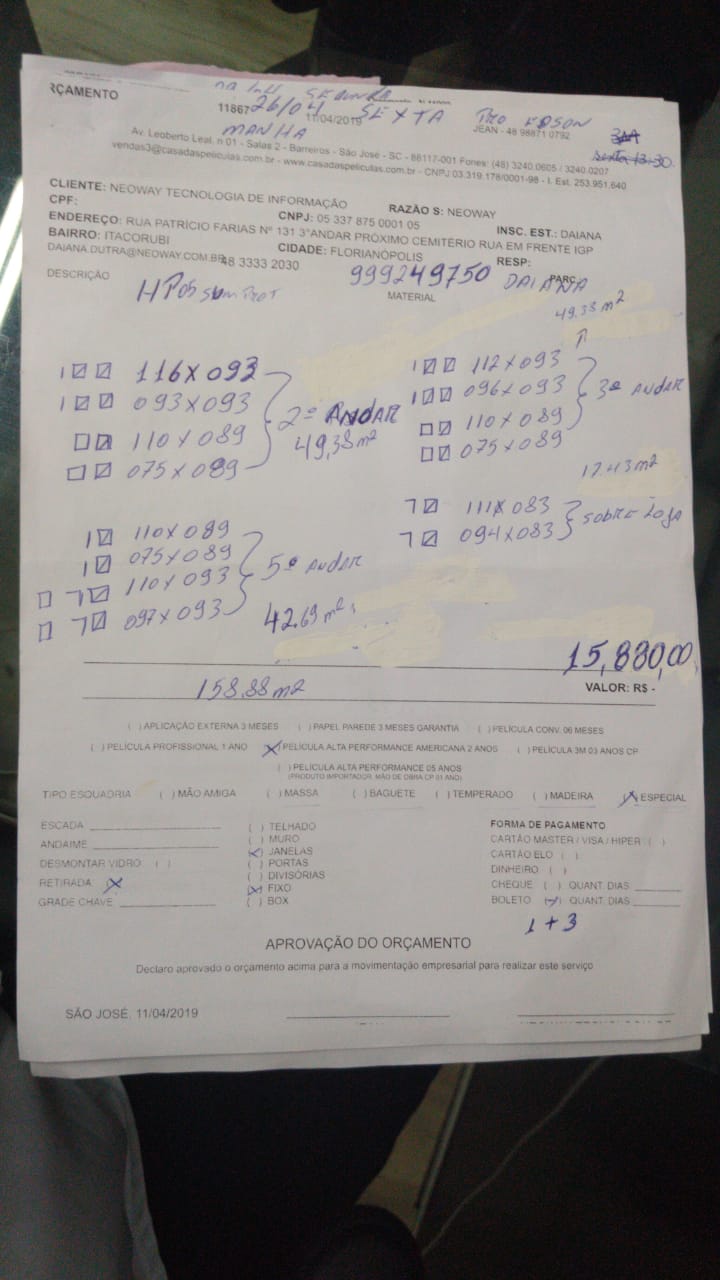 RÇAMENTO
SEGUNDA
11867 26/04 11/04/2019 SEXTA EDSON
MANHA JEAN - 48 98871 0792
Sexta 13:30
Av. Leoberto Leal, n 01 - Salas 2 - Barreiros - São José - SC - 88117-001 Fones: (48) 3240.0605 / 3240.0207
vendas3@casadaspeliculas.com.br - www.casadaspeliculas.com.br - CNPJ 03.319.178/0001-98 - I. Est. 253.951.640
CLIENTE: NEOWAY TECNOLOGIA DE INFORMAÇÃO RAZÃO S: NEOWAY
CPF: CNPJ: 05 337 875 0001 05 INSC. EST.: DAIANA
ENDEREÇO: RUA PATRÍCIO FARIAS Nº 131 3°ANDAR PRÓXIMO CEMITÉRIO RUA EM FRENTE IGP
BAIRRO: ITACORUBI CIDADE: FLORIANÓPOLIS RESP:
DAIANA.DUTRA@NEOWAY.COM.BR 48 3333 2030 999249750 DAIANA PARC
DESCRIÇÃO MATERIAL
HP05
49.38 m2
116x093 112x093
093x093 2º ANDAR 096x093 3º ANDAR
110x089 49,38m2 110x089
075x089 075x089
17.43m2
111x083 SOBRE LOJA
094x083
110x089
075x089 5º ANDAR
110x093
097x093 42.69m2
15,880,00
158.88m2 VALOR: R$ -
( ) APLICAÇÃO EXTERNA 3 MESES ( ) PAPEL PAREDE 3 MESES GARANTIA ( ) PELÍCULA CONV. 06 MESES
( ) PELÍCULA PROFISSIONAL 1 ANO (X) PELÍCULA ALTA PERFORMANCE AMERICANA 2 ANOS ( ) PELÍCULA 3M 03 ANOS CP
( ) PELÍCULA ALTA PERFORMANCE 05 ANOS
(PRODUTO IMPORTADOR. MÃO DE OBRA CP 01 ANO)
TIPO ESQUADRIA ( ) MÃO AMIGA ( ) MASSA ( ) BAGUETE ( ) TEMPERADO ( ) MADEIRA (X) ESPECIAL
ESCADA ( ) TELHADO FORMA DE PAGAMENTO
ANDAIME ( ) MURO CARTÃO MASTER / VISA / HIPER ( )
(X) JANELAS CARTÃO ELO ( )
DESMONTAR VIDRO: ( ) ( ) PORTAS DINHEIRO ( )
RETIRADA: (X) ( ) DIVISÓRIAS CHEQUE ( ) QUANT. DIAS
(X) FIXO BOLETO (X) QUANT. DIAS
GRADE CHAVE ( ) BOX
1+3
APROVAÇÃO DO ORÇAMENTO
Declaro aprovado o orçamento acima para a movimentação empresarial para realizar este serviço
SÃO JOSÉ, 11/04/2019